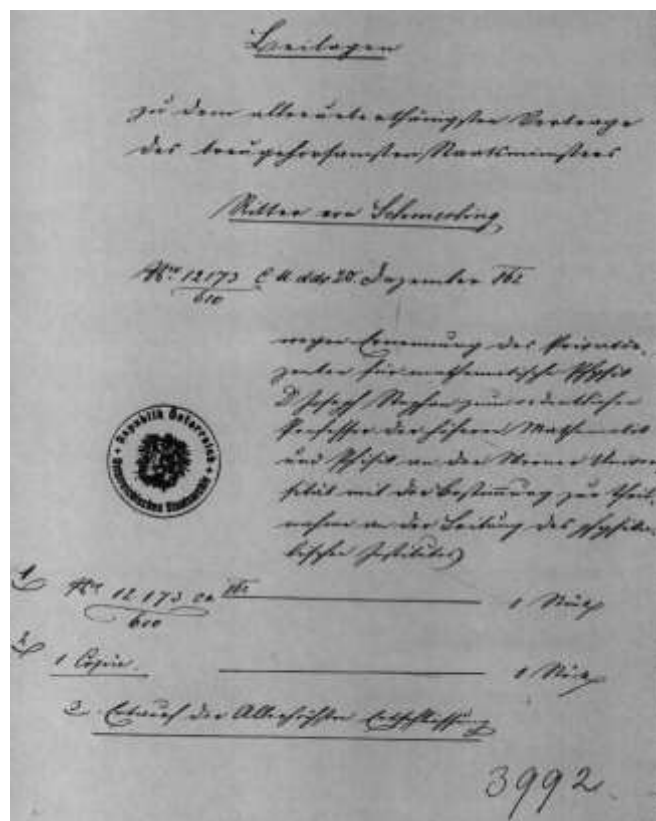 Beilagen
zu dem allerunterthänigsten Vortrage
des treugehorsamsten Staatsministers
Ritter von Schmerling
Nro 12173/610 C U ddo 20. Dezember 862
wegen Ernennung des Privatdo-
zenten für mathematische Physik
Dr Joseph Stephan zum ordentlichen
Professor der höheren Mathematik
und Physik an der Wiener Univer-
sität mit der Bestimmung zur Theil-
nahme an der Leitung des physika-
lischen Institutes
Republik Österreich
Österreichisches Staatsarchiv
1. Nro 12173/610 CU 862 1 Stück
2. 1 Copie. 1 Stück
3. Entwurf der Allerhöchsten Entschließung
3992.